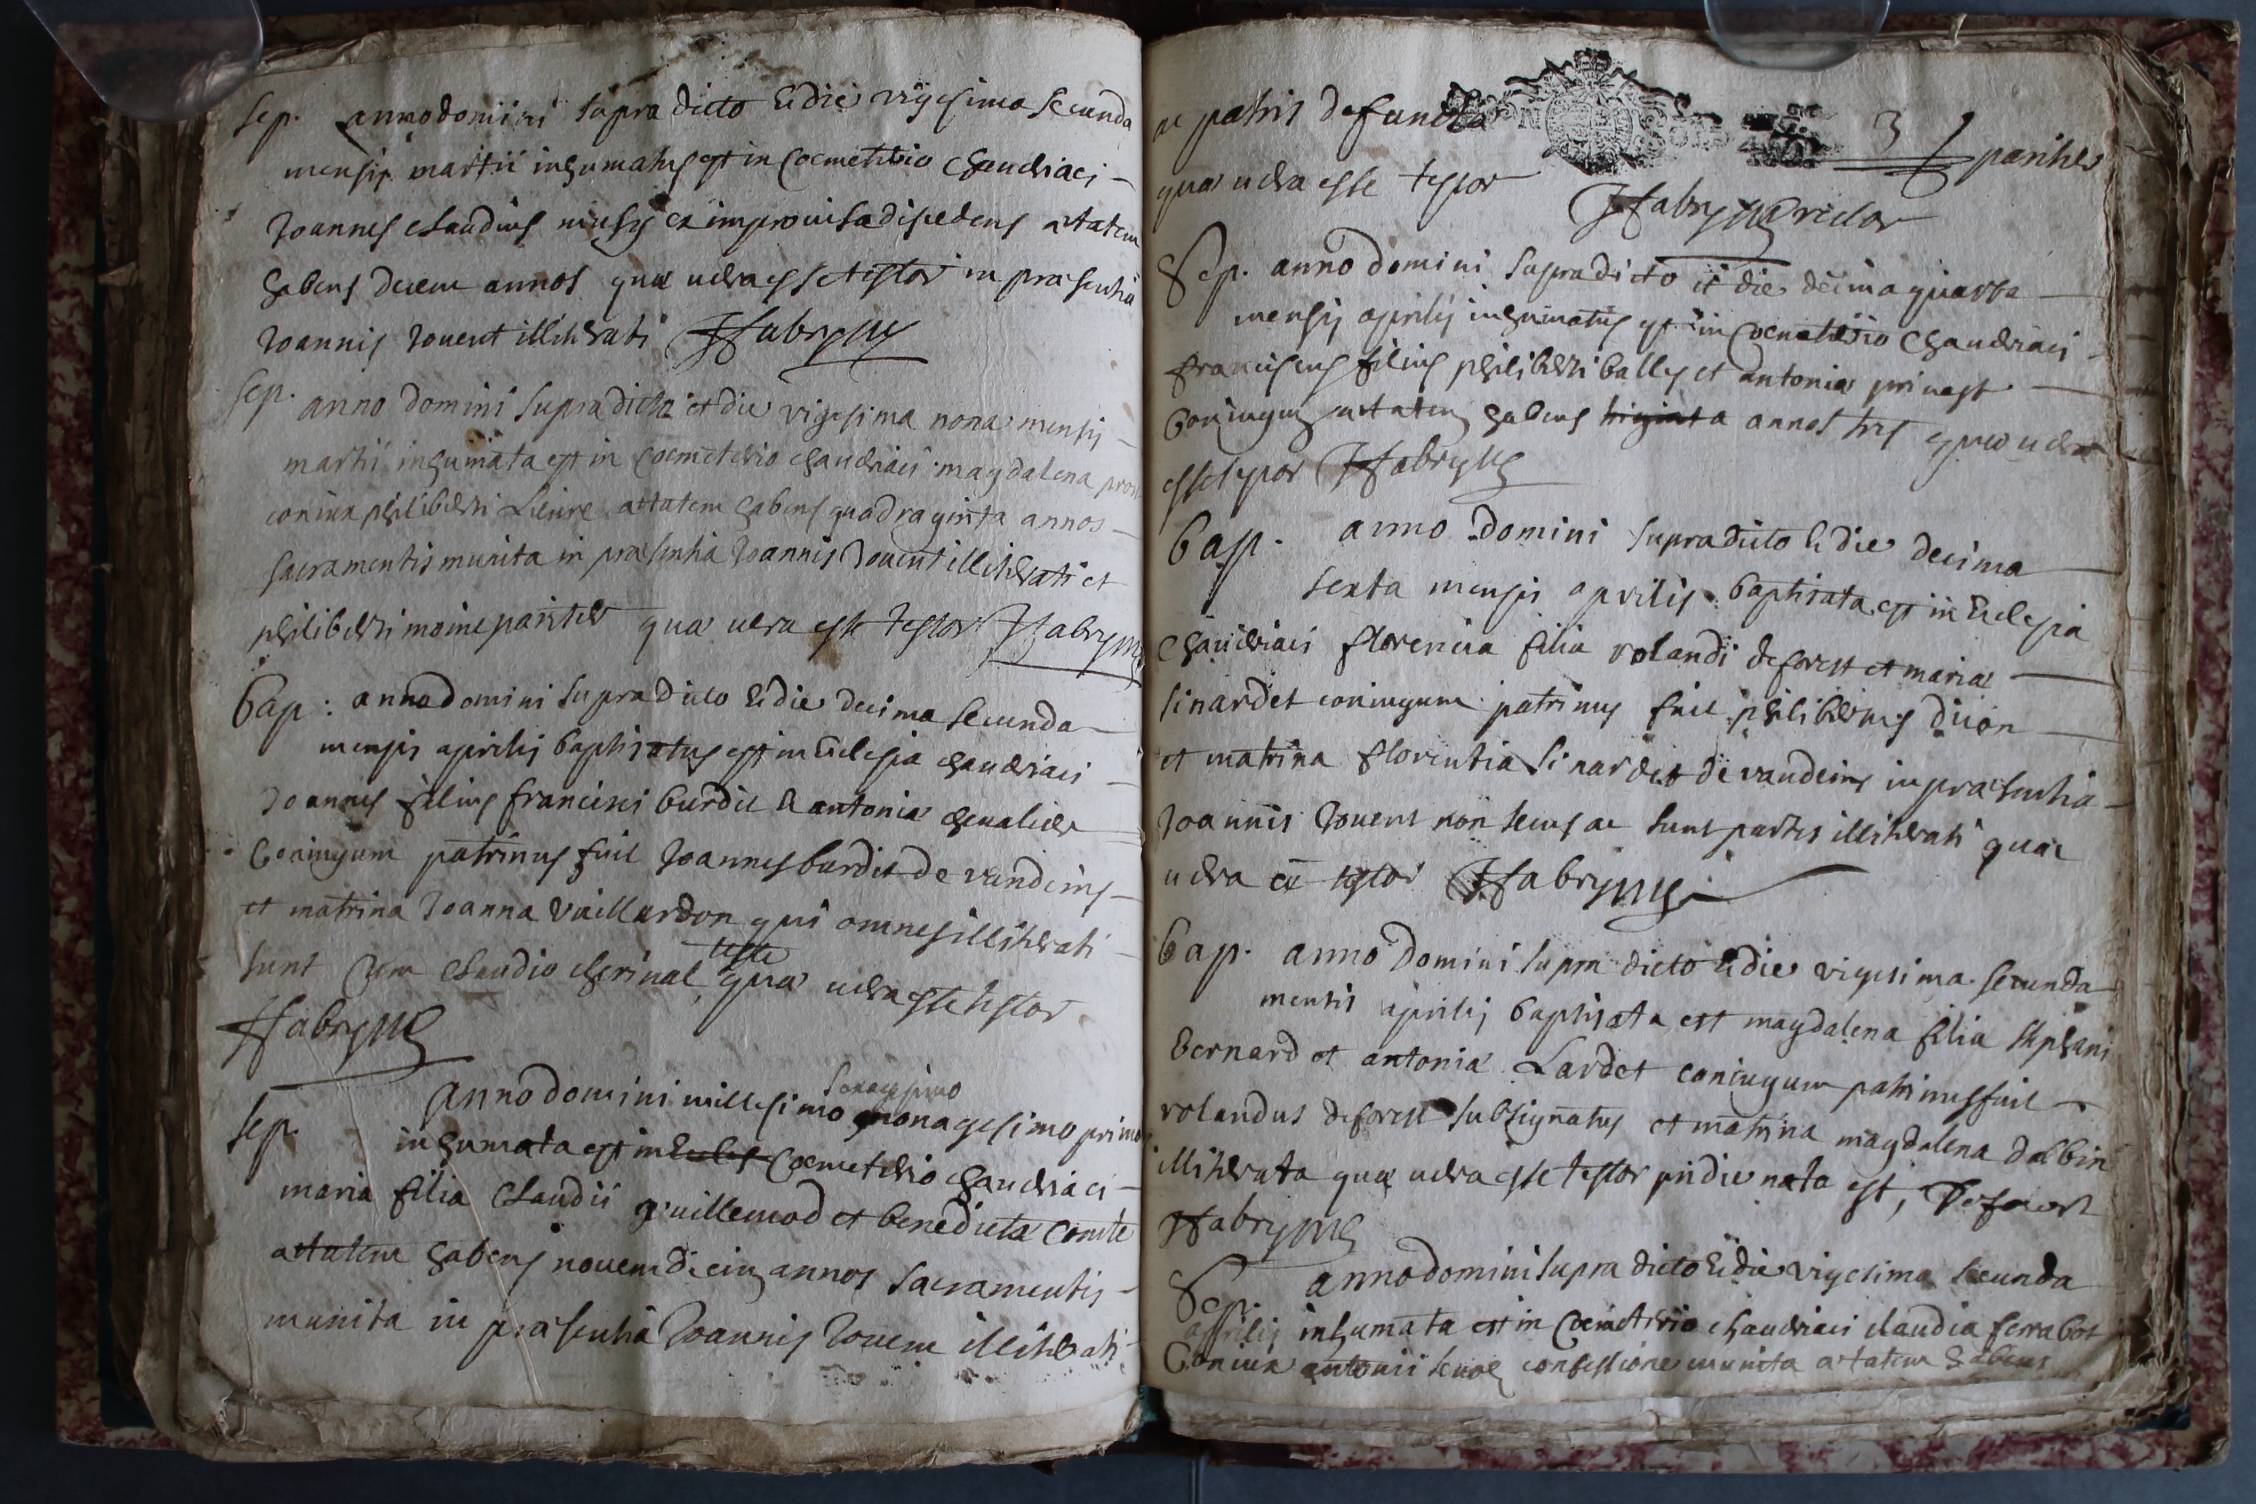 Sep. anno domini supra dicto & die vigesima secunda
mensis martii inhumatus est in coemeterio chaudriaci
Joannes claudius ex improviso discedens ætatem
habens decem annos quæ vera esse testor in præsentia
Joannis Jovent illiterati Ffabry
Sep. anno domini supradicto et die vigesima nona mensis
martii inhumata est in coemeterio chaudriaci magdalena
coniux philiberti Lievre ætatem habens quadraginta annos
sacramentis munita in præsentia Joannis Jovent illiterati et
philiberti moine pariter quæ vera esse testor Ffabry
Bap: anno domini supra dicto & die decima secunda
mensis aprilis baptisatus est in Eclesia chaudriaci
Joannes filius francisci burdit & antoniæ chevalier
Coniugum patrinus fuit Joannes burdit de vandeins
et matrina Joanna Vuillardon qui omnes illiterati
sunt cum claudio cherinal teste quæ vera esse testor
Ffabry
Sep. anno domini millesimo sexcegesimo nonagesimo primo
inhumata est in Eccles coemeterio chaudriaci
maria filia claudii guillemod et benedictæ comte
ætatem habens novemdecim annos sacramentis
munita in præsentia Joannis Jovent illiterati
ac patris defunctæ 3 pariter
quæ vera esse testor Ffabry
Sep. anno domini supradicto et die decima quarta
mensis aprilis inhumatus est in coemeterio chaudriaci
franciscus filius philiberti bally et antoniæ privast
Coniugum ætatem habens triginta annos tres quæ vera
esse testor Ffabry
Bap. anno domini supradicto & die decima
sexta mensis aprilis baptisata est in Eclesia
chaudriaci florencia filia rolandi deforest et mariæ
sinardet coniugum patrinus fuit philibertus dison
et matrina florentia sinardet de vandeins in præsentia
Joannis Jovent non secus ac sunt partes illiterati quæ
vera testor Ffabry
Bap. anno domini supra dicto & die vigesima secunda
mensis aprilis baptisata est magdalena filia stephani
Bernard et antoniæ Lardet coniugum patrinus fuit
rolandus deforest subsignatus et matrina magdalena dalbin
illiterata quæ vera esse testor pridie nata est, Deforest
Ffabry
Sep. anno domini supra dicto & die vigesima secunda
aprilis inhumata est in coemeterio chaudriaci claudia ferrabot
Coniux antonii confessione munita ætatem habens